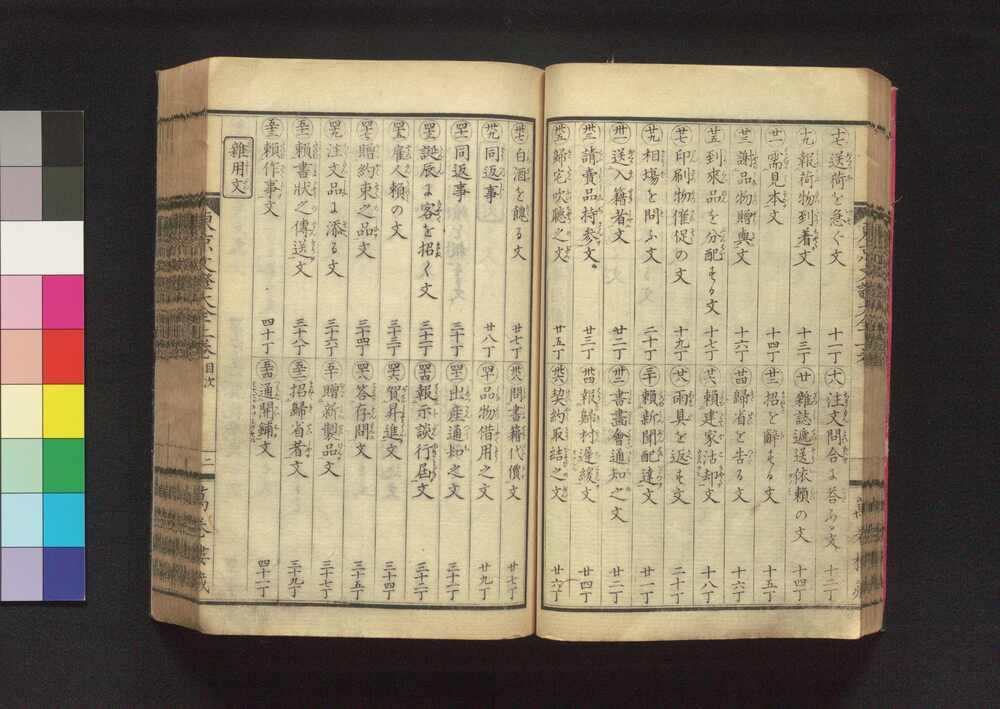 十七 送荷を急ぐ文 十一丁 十八 注文問合に荅ふる文 十二丁
十九 報荷物到着文 十三丁 廿 雜誌遞送依頼の文 十四丁
廿一 需見本文 十四丁 廿二 招を辭する文 十五丁
廿三 謝品物贈與文 十六丁 廿四 歸省を告る文 十六丁
廿五 到來品を分配する文 十七丁 廿六 頼建家沽却文 十八丁
廿七 印刷物催促の文 十九丁 廿八 雨具を返す文 二十丁
廿九 相塲を問ふ文 二十丁 三十 頼新聞配達文 廿一丁
卅一 送入籍者文 廿二丁 卅二 書畫會通知之文 廿二丁
卅三 請賣品持参文 廿三丁 卅四 報歸村遲緩文 廿四丁
卅五 歸宅吹聽之文 廿五丁 卅六 契約取結之文 廿六丁
卅七 白酒を餽る文 廿七丁 卅八 問書籍代價文 廿七丁
卅九 同返事 廿八丁 四十 品物借用之文 廿九丁
四十一 同返事 三十丁 四十二 出産通知之文 三十一丁
四十三 誕辰に客を招く文 三十二丁 四十四 報示談行屆文 三十二丁
四十五 雇人頼の文 三十三丁 四十六 賀昇進文 三十四丁
四十七 贈約束之品文 三十四丁 四十八 答存問文 三十五丁
四十九 注文品に添る文 三十六丁 五十 贈新製品文 三十七丁
五十一 頼書狀之傳送文 三十八丁 五十二 招歸省者文 三十九丁
五十三 頼作事文 四十丁 五十四 通開鋪文 四十一丁
雜用文
目次 二 萬卷樓藏